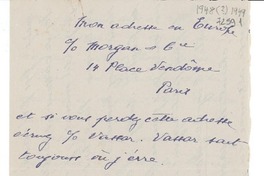 1948(?) 1949
Mon adresse en Europe
c/o Morgan & Cie
14 Place Vendôme
Paris
et si vous perdez cette adresse
écrivez c/o Vassar. Vassar sait
toujours où j'erre.